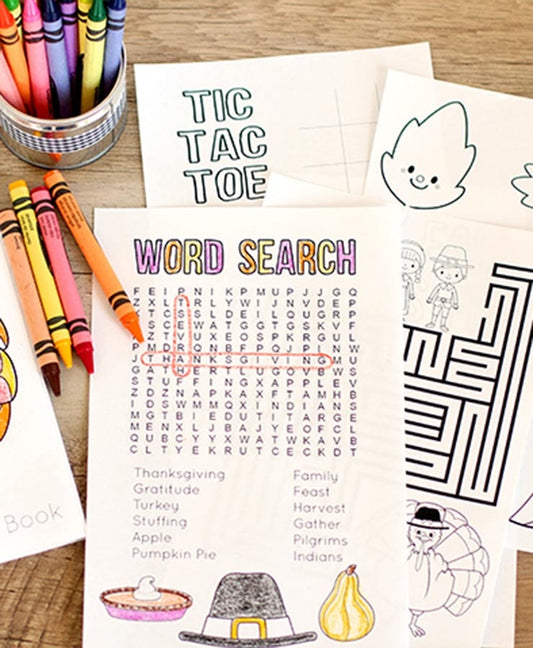 TIC
TAC
TOE
WORD SEARCH
F E I P N I K P M U P J J G Q
Z X L T R L Y W I J N V D E P
T C S S L D E I L Q U G R P
S C E W A T G G T G S K V F
Z T V U X E O S P K R G U L
P M D R Q N B F P O J P I N W
J T H A N K S G I V I N G M U
G A T H E R T L U G V O B W S
S T U F F I N G X A P P L E V
Z D Z N A P K A X F T A M H B
I D S W M M Q X I N D I A N S
M G T B I E D U T I T A R G E
M E N X L J B A J Y E O F C L
Q U B C Y Y X W A T W K A V B
C L T Y E K R U T C E C K D T
Thanksgiving Family
Gratitude Feast
Turkey Harvest
Stuffing Gather
Apple Pilgrims
Pumpkin Pie Indians
Book